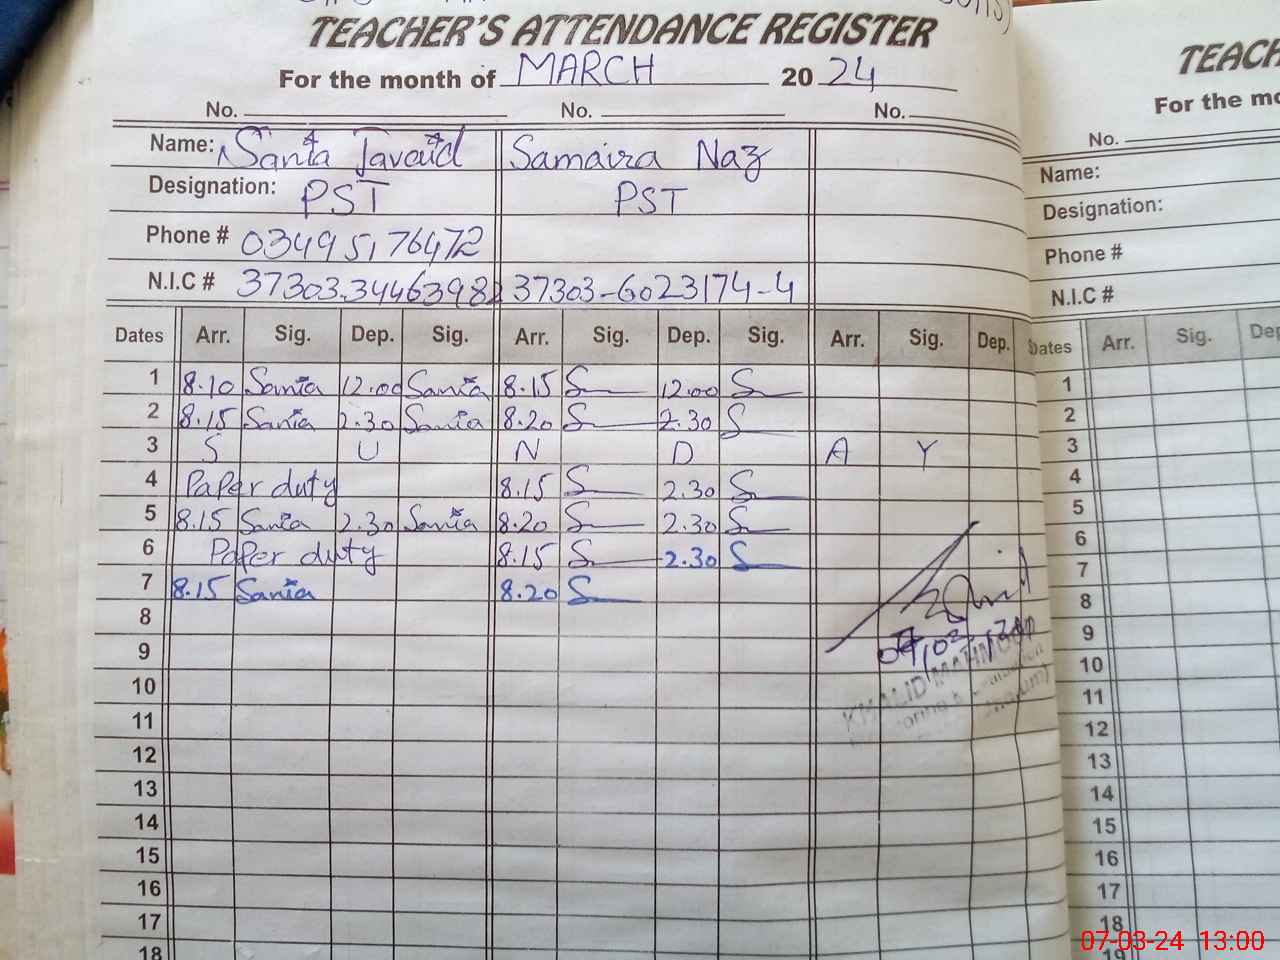 TEACHER'S ATTENDANCE REGISTER
For the month of MARCH 20 24
No. No. No.
Name: Sania Javaid Samaira Naz
Designation: PST PST
Phone # 03495176472
N.I.C # 37303-6023174-4
Dates Arr. Sig. Dep. Sig. Arr. Sig. Dep. Sig. Arr. Sig. Dep.
1 8.10 Sania 12.00 Sania 8.15 S 12.00 S
2 8.15 Sania 2.30 Sania 8.20 S 2.30 S
3 S U N D A Y
4 Paper duty 8.15 S 2.30 S
5 8.15 Sania 2.30 Sania 8.20 S 2.30 S
6 Paper duty 8.15 S 2.30 S
7 8.15 Sania 8.20 S
8
9
10
11
12
13
14
15
16
17
18
KHALID MAHMOOD
TEACH
For the mo
No.
Name:
Designation:
Phone #
N.I.C #
Dates Arr. Sig. Dep
1
2
3
4
5
6
7
8
9
10
11
12
13
14
15
16
17
18
19
07-03-24 13:00